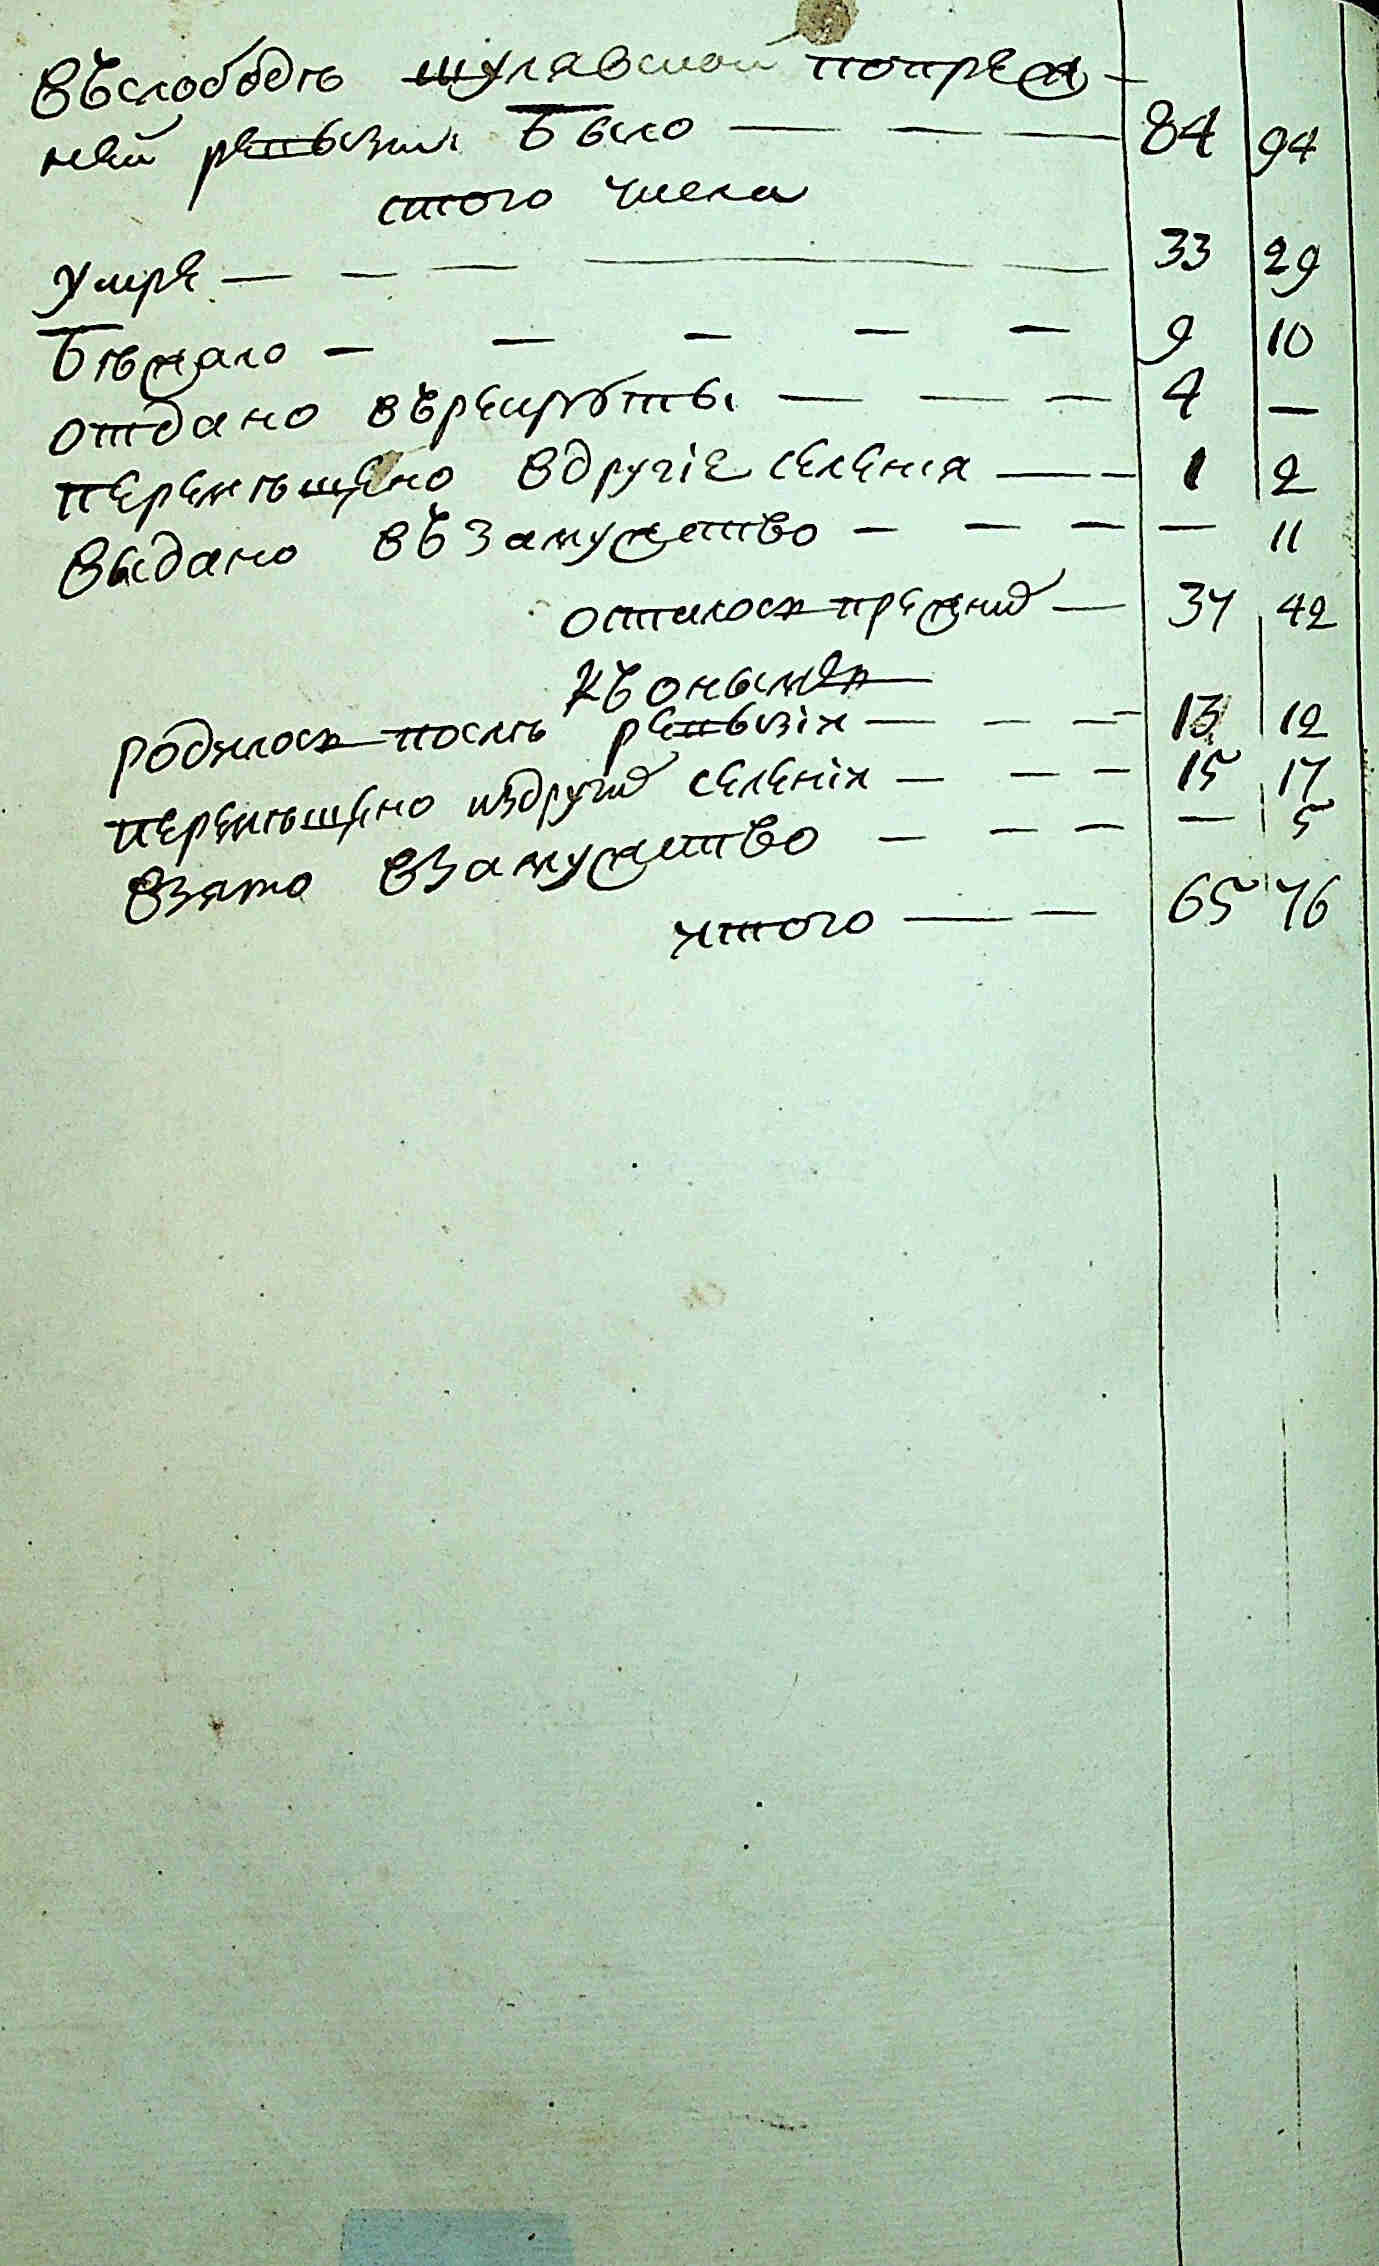 въслободѣ шулявской попреж-
ней ревизиі было — — — 84 94
стого числа
умре — — — — — 33 29
бѣжало — — — — — 9 10
отдано върекруты — — — 4 —
перемѣщено вдругіе селенія — — 1 2
выдано въ замужство — — — — 11
осталось прежних — 37 42
къоным
родилось послѣ ревизіи — — — 13 12
перемѣщено издругих селеніи — — — 15 17
взято взамужство — — — — 5
итого — — 65 76